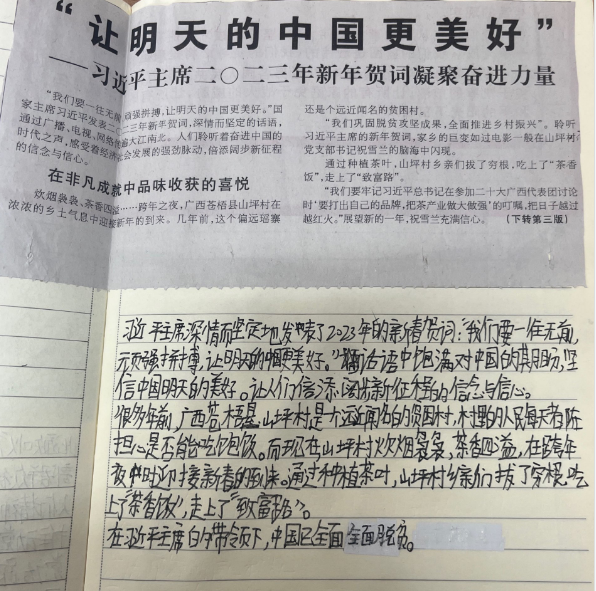 “让明天的中国更美好”
——习近平主席二〇二三年新年贺词凝聚奋进力量
“我们要一往无前、顽强拼搏,让明天的中国更美好。”国
家主席习近平发表二〇二三年新年贺词,深情而坚定的话语,
通过广播、电视、网络传遍大江南北。人们聆听着奋进中国的
时代之声,感受着经济社会发展的强劲脉动,倍添阔步新征程
的信念与信心。
在非凡成就中品味收获的喜悦
炊烟袅袅、茶香四溢……跨年之夜,广西苍梧县山坪村在
浓浓的乡土气息中迎接新年的到来。几年前,这个偏远瑶寨
还是个远近闻名的贫困村。
“我们巩固脱贫攻坚成果,全面推进乡村振兴”。聆听
习近平主席的新年贺词,家乡的巨变如过电影一般在山坪村
党支部书记祝雪兰的脑海中闪现。
通过种植茶叶,山坪村乡亲们拔了穷根,吃上了“茶香
饭”,走上了“致富路”。
“我们要牢记习近平总书记在参加二十大广西代表团讨论
时‘要打出自己的品牌,把茶产业做大做强’的叮嘱,把日子越过
越红火。”展望新的一年,祝雪兰充满信心。(下转第三版)
习近平主席深情而坚定地发表了2023年的新年贺词:“我们要一往无前,
顽强拼搏,让明天的中国更美好。”话语中饱满对中国的期盼,坚
信中国明天的美好。让人们倍添阔步新征程的信念与信心。
很多年前,广西苍梧县山坪村是个远近闻名的贫困村,村里的人民每天都在
担心是否能吃饱饭。而现在山坪村炊烟袅袅,茶香四溢,在跨年
夜中时迎接新春的到来。通过种植茶叶,山坪村乡亲们拔了穷根,吃
上了“茶香饭”,走上了“致富路”。
在习近平主席的带领下,中国已全面全面脱贫。